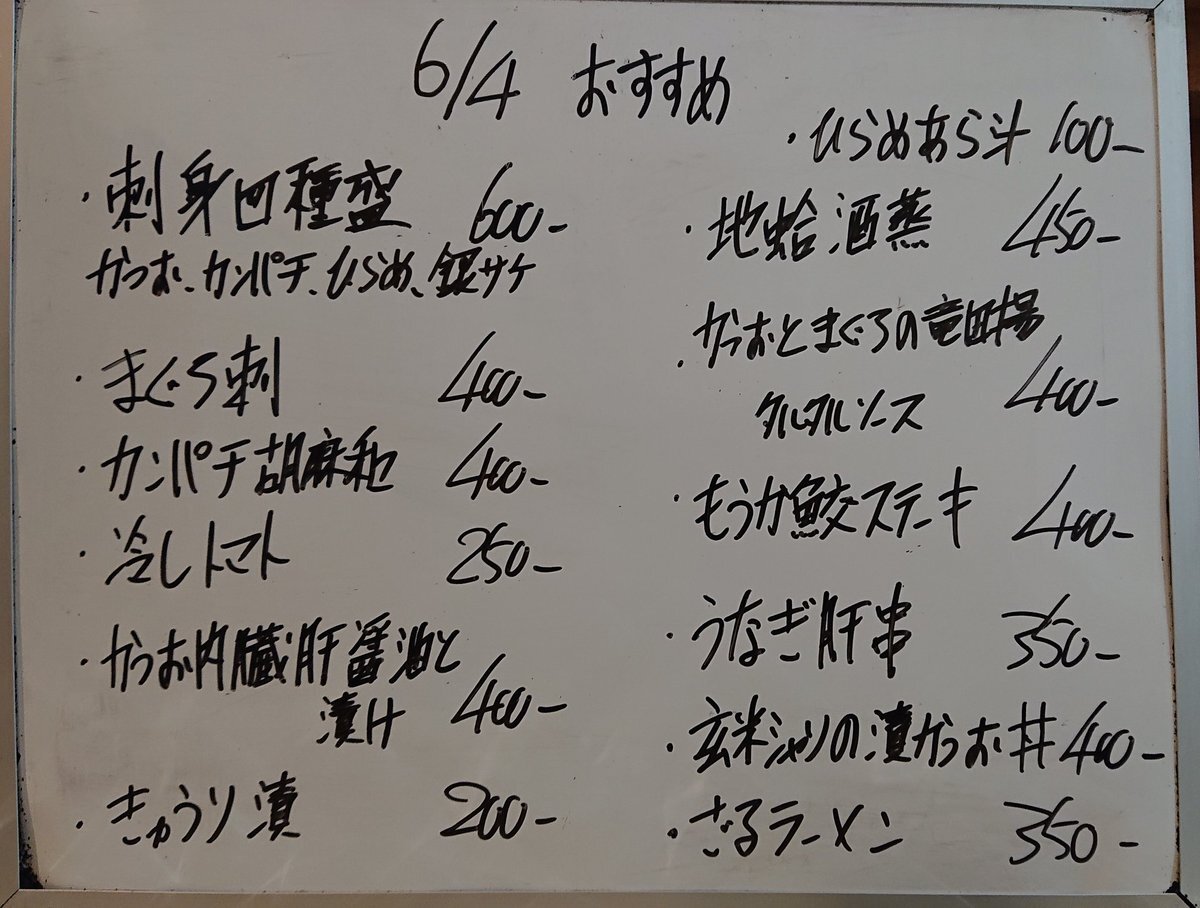 6/4 おすすめ
・刺身四種盛 600-
かつお、カンパチ、ひらめ、銀サケ
・まぐろ刺 400-
・カンパチ胡麻和 400-
・冷しトマト 250-
・かつお内臓肝醤油と
漬け 400-
・きゅうり漬 200-
・ひらめあら汁 100-
・地蛤酒蒸 450-
・かつおとまぐろの竜田揚
タルタルソース 400-
・もうか鮫ステーキ 400-
・うなぎ肝串 350-
・玄米シャリの漬かつお丼 400-
・ざるラーメン 350-